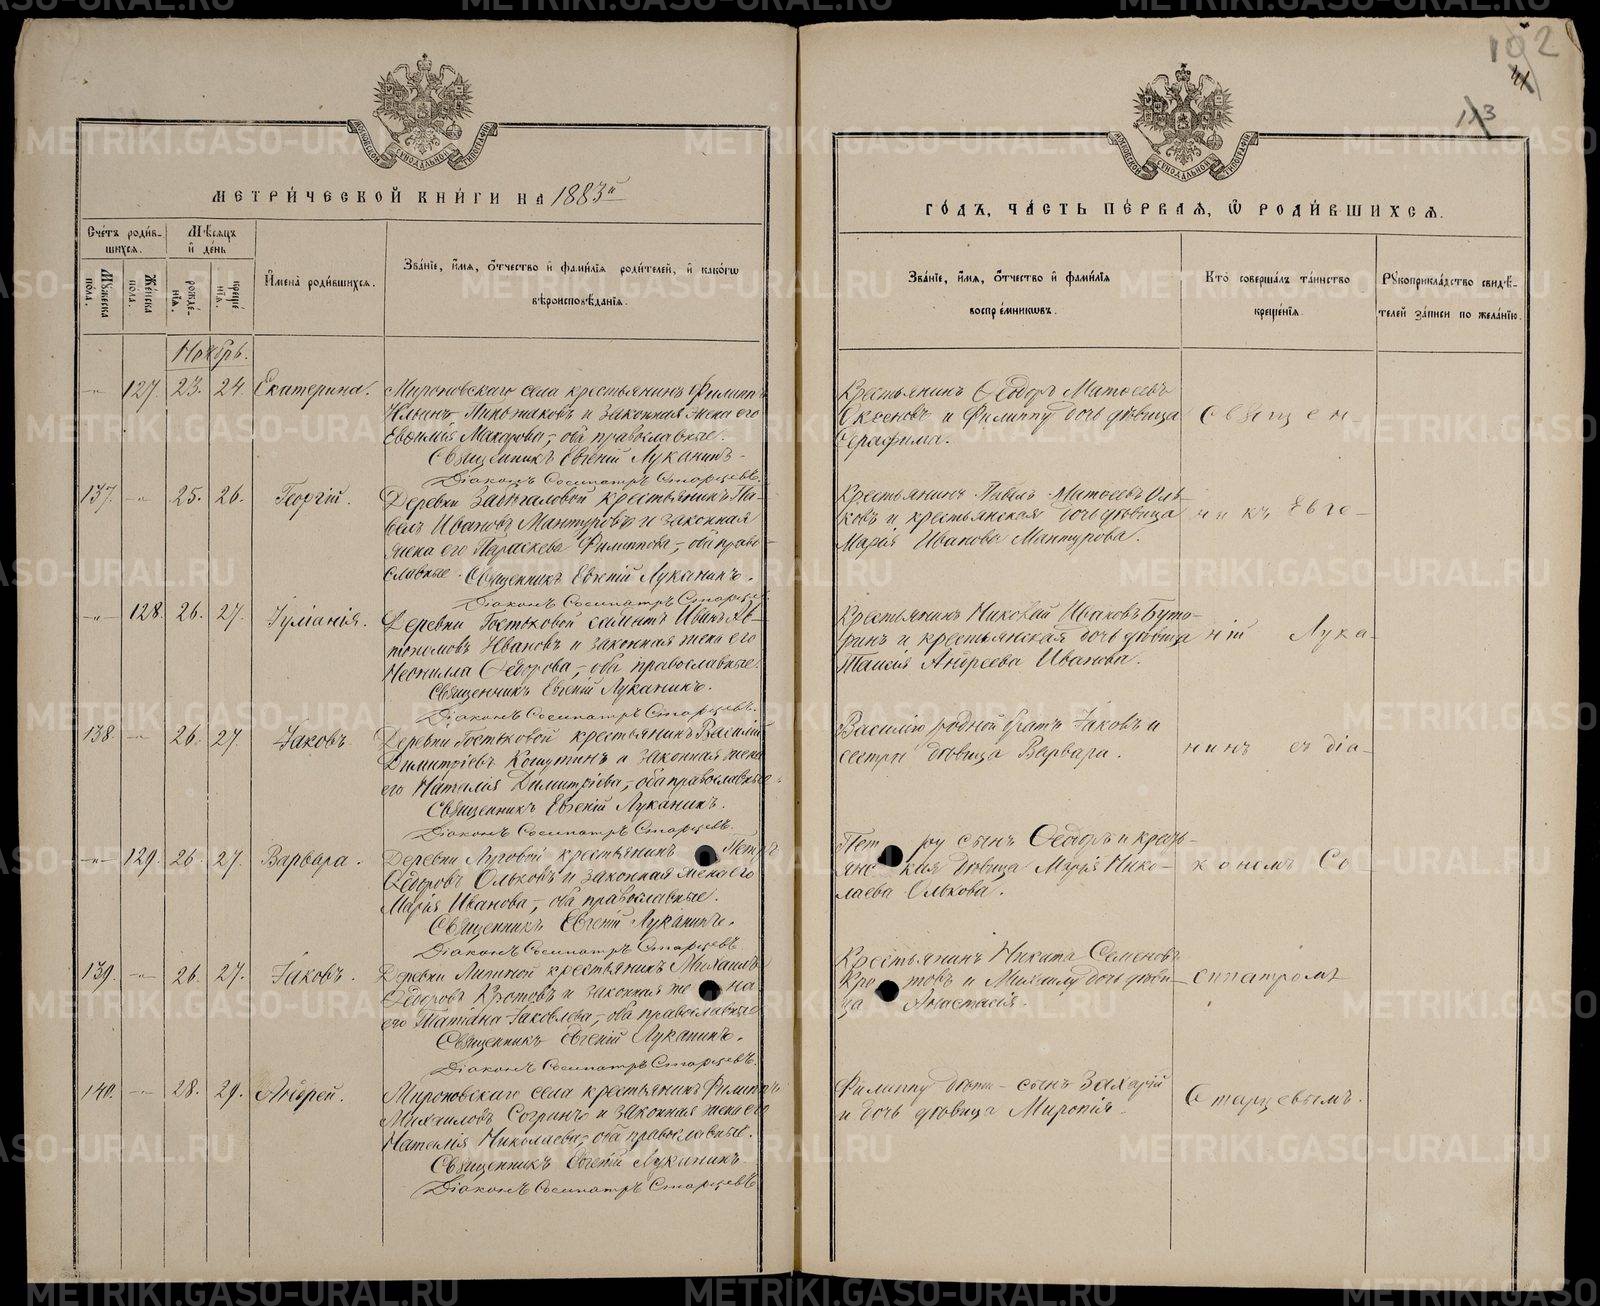 МЕТРИЧЕСКОЙ КНИГИ НА 1883й
Счетъ родив-
шихся.
Мѣсяцъ
и день
Имена родившихся.
Званіе, имя, отчество и фамилія родителей, и какогω
вѣроисповѣданія.
Мужеска пола.
Женска пола.
рожденія.
крещенія.
Ноябрь.
-"- 127. 23. 24. Екатерина. Мироновскаго села крестьянинъ Филиппъ
Ильинъ и законная жена его
Евѳимія Макарова, оба православные.
Священникъ Евгеній Луканинъ
Діаконъ Сосипатръ Старцевъ.
137. -"- 25. 26. Георгій. Деревни крестьянинъ Па-
велъ Ивановъ Мантуровъ и законная
жена его Параскева Филиппова, оба право-
славные. Священникъ Евгеній Луканинъ.
Діаконъ Сосипатръ Старцевъ.
-"- 128. 26. 27. Іуліанія. Деревни солдатъ Иванъ
Ивановъ и законная жена его
Неонилла Ѳедорова, оба православные.
Священникъ Евгеній Луканинъ.
Діаконъ Сосипатръ Старцевъ.
138. -"- 26. 27. Іаковъ. Деревни крестьянинъ Василій
Димитріевъ и законная жена
его Наталія Димитріева, оба православные.
Священникъ Евгеній Луканинъ.
Діаконъ Сосипатръ Старцевъ.
-"- 129. 26. 27. Варвара. Деревни Луговой крестьянинъ Петръ
Ѳедоровъ Ольковъ и законная жена его
Марія Иванова, оба православные.
Священникъ Евгеній Луканинъ.
Діаконъ Сосипатръ Старцевъ.
139. -"- 26. 27. Іаковъ. Деревни Липиной крестьянинъ Михаилъ
Ѳедоровъ Кротовъ и законная жена
его Татіана Іаковлева, оба православные.
Священникъ Евгеній Луканинъ.
Діаконъ Сосипатръ Старцевъ.
140. -"- 28. 29. Андрей. Мироновскаго села крестьянинъ Филиппъ
Михаиловъ Согринъ и законная жена его
Наталія Николаева, оба православные.
Священникъ Евгеній Луканинъ
Діаконъ Сосипатръ Старцевъ
102
41
113
ГОДЪ, ЧАСТЬ ПЕРВАЯ, Ѡ РОДИВШИХСЯ.
Званіе, имя, отчество и фамилія
воспрѣемниковъ.
Кто совершалъ таинство
крещенія.
Рукоприкладство свидѣ-
телей записи по желанію.
Крестьянинъ Ѳедоръ Матѳеевъ
и Филиппу дочь дѣвица
Серафима.
Священ
Крестьянинъ Павелъ Матѳеевъ Оль-
ковъ и крестьянская дочь дѣвица
Марія Иванова Мантурова.
никъ Евге-
Крестьянинъ Николай Ивановъ Буто-
ринъ и крестьянская дочь дѣвица
Таисія Андреева Иванова.
ній Лука-
Василію родной братъ Іаковъ и
сестра дѣвица Варвара.
нинъ съ діа-
Петру сынъ Ѳеодоръ и кресть-
янская дѣвица Марія Нико-
лаева Олькова.
кономъ Со
Крестьянинъ Никита Семеновъ
Кротовъ и Михаилу дочь дѣви-
ца Анастасія.
сипатромъ
Филиппу дѣти - сынъ Захарій
и дочь дѣвица Миропія.
Старцевымъ.
METRIKI.GASO-URAL.RU